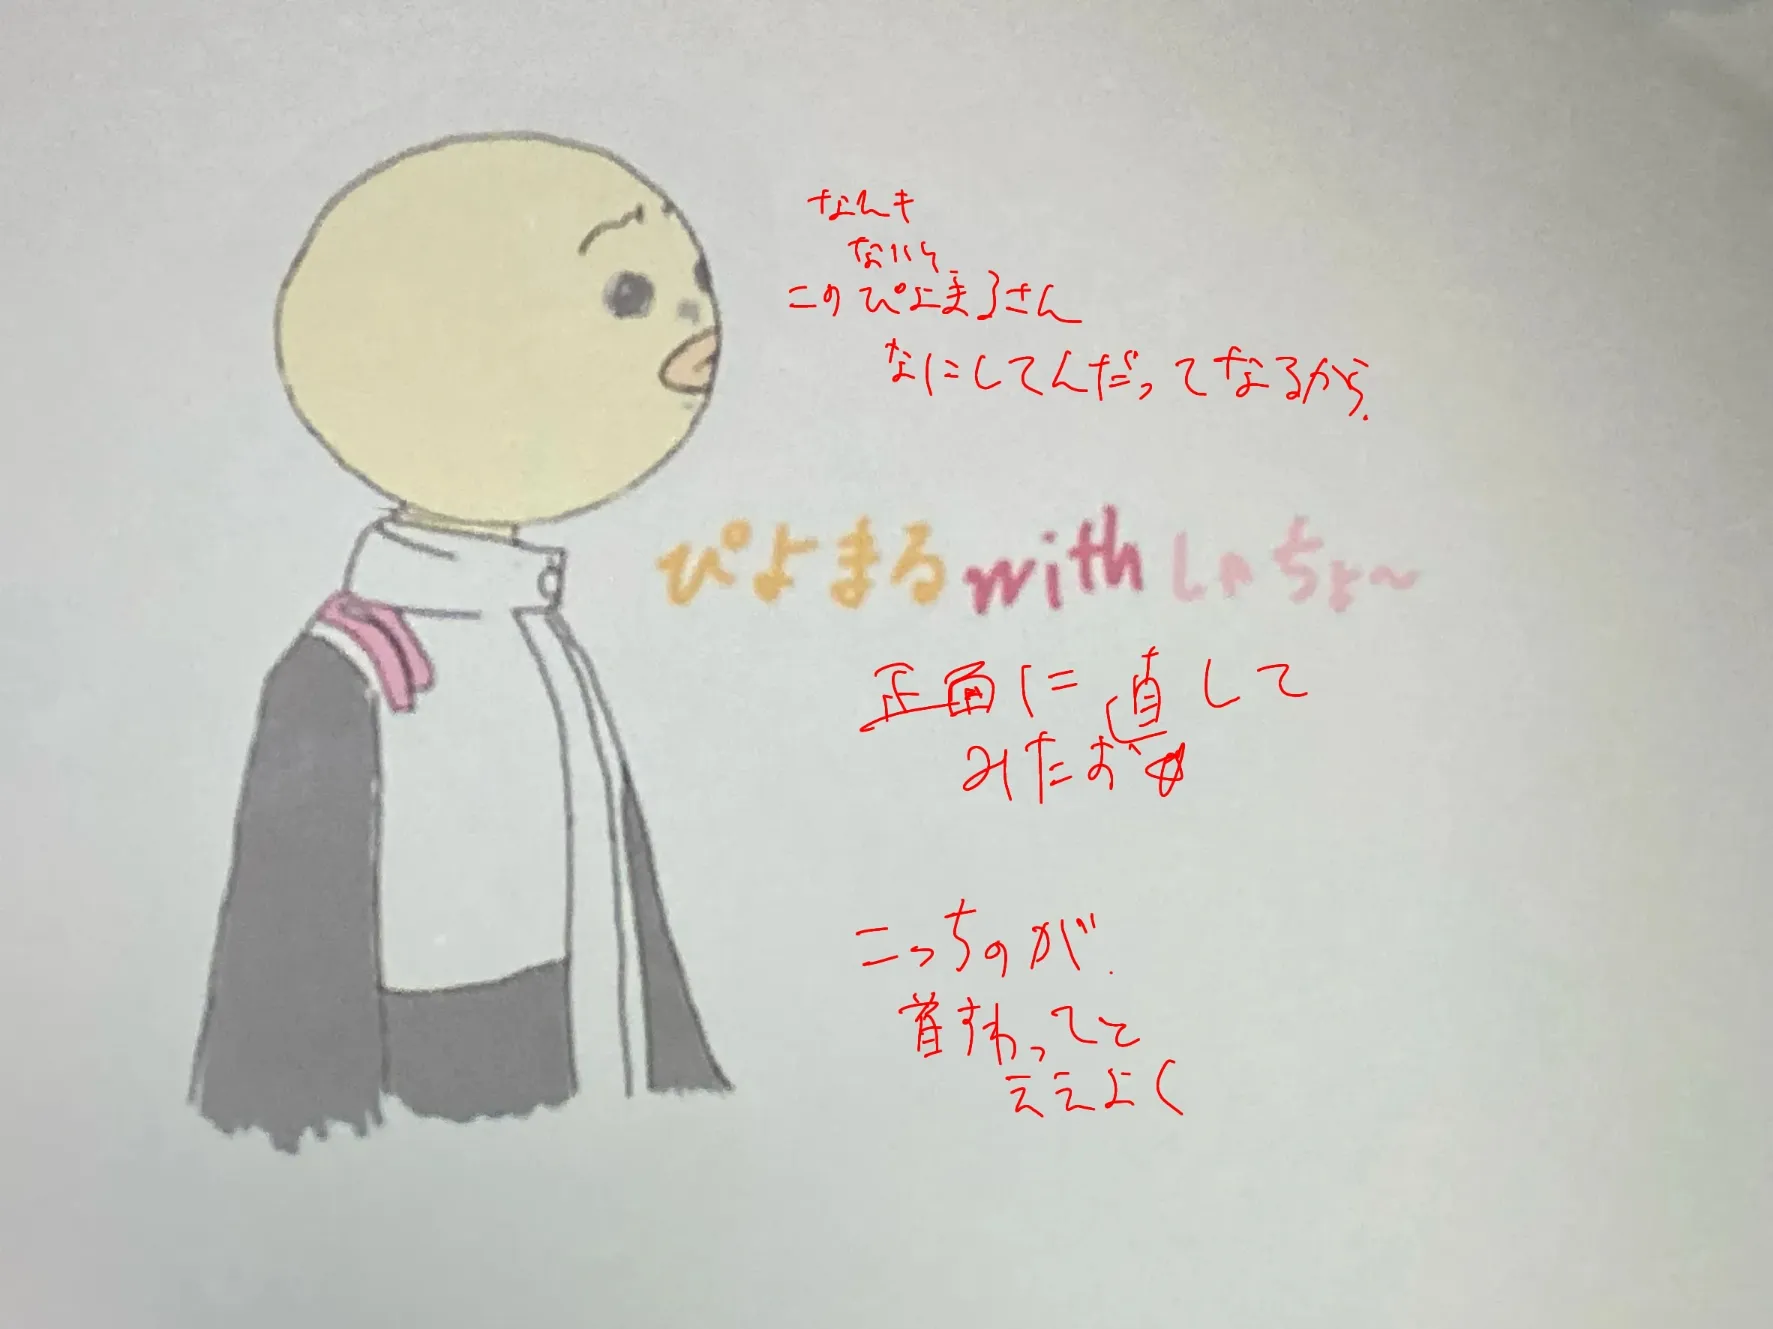 なんも
ないけど
このぴよまるさん
なにしてんだってなるから.
ぴよまるwithしゃちょ〜
正面に直して
みたお
こっちのが.
首すわってて
ええよく